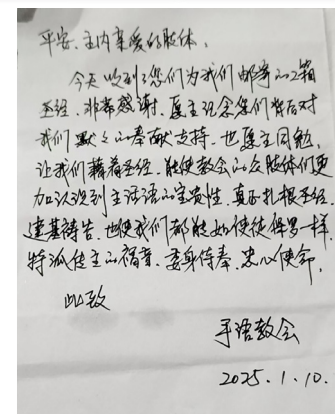 平安、主内亲爱的肢体、
今天收到了您们为我们邮寄的2箱
圣经、非常感谢、愿主纪念您们背后对
我们默默的奉献支持、也愿主同勉、
让我们藉着圣经、能使教会的众肢体们更
加认识到主话语的宝贵性、真正扎根圣经、
建基祷告、也使我们都能如使徒保罗一样、
特派传主的福音、委身侍奉、忠心使命、
此致
手语教会
2025.1.10.